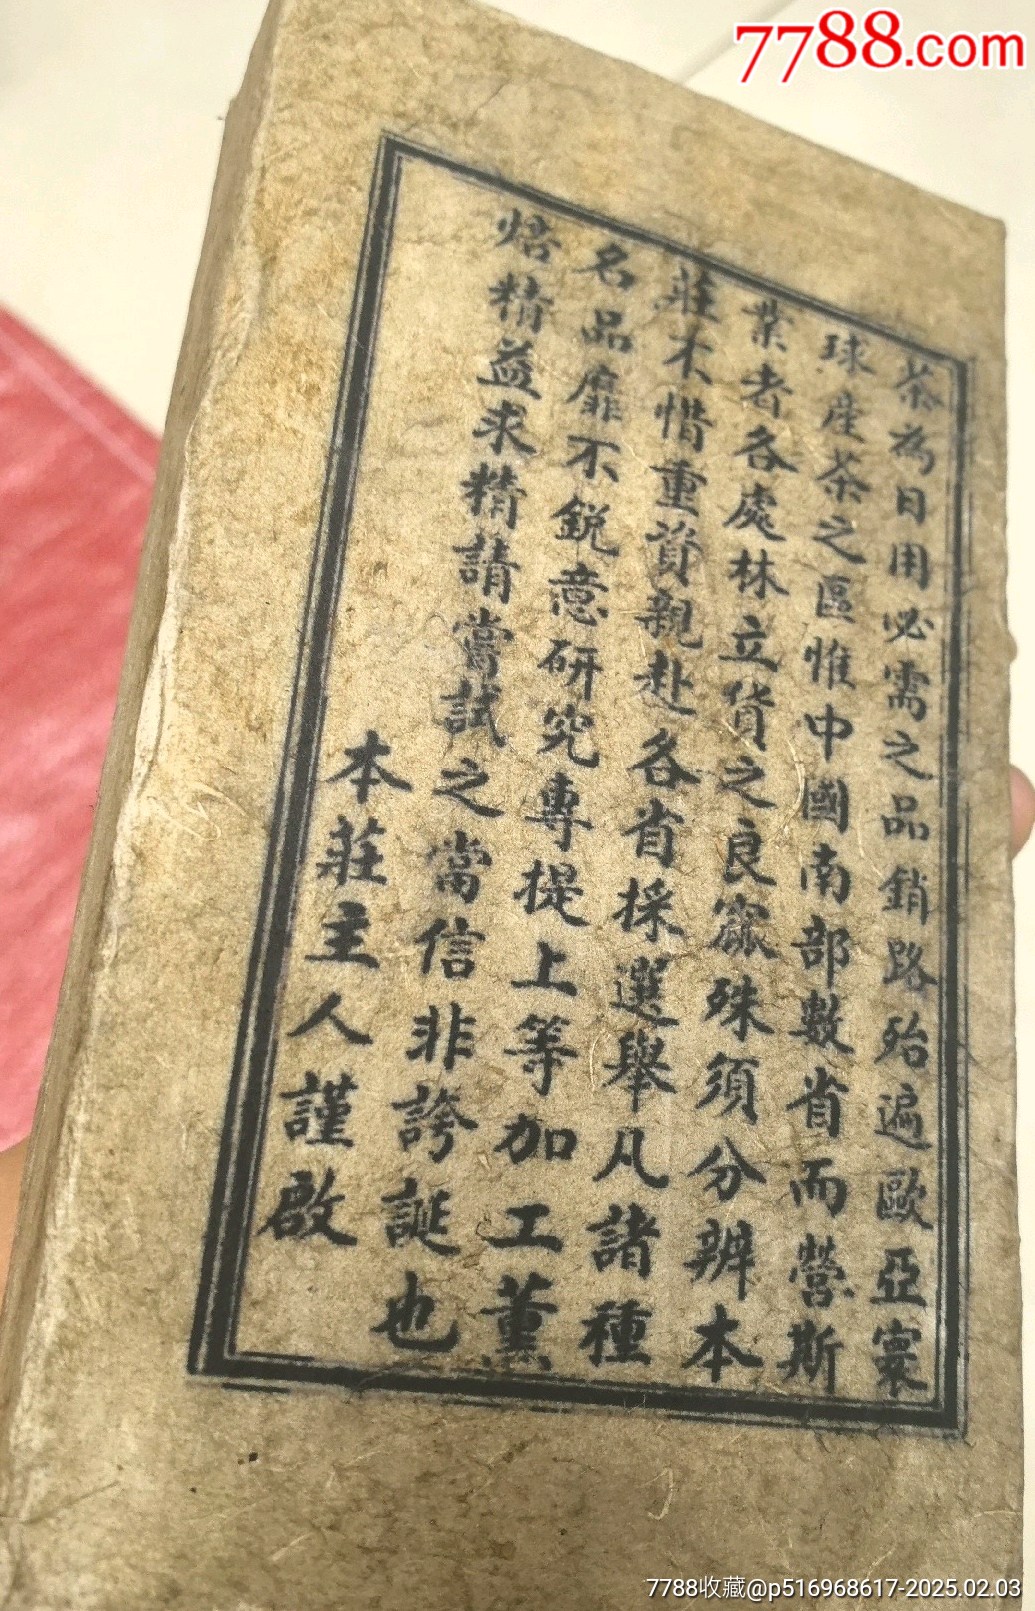 7788.com
茶為日用必需之品銷路殆遍歐亞寰
球產茶之區惟中國南部數省而營斯
業者各處林立貨之良窳殊須分辨本
莊不惜重資親赴各省採選舉凡諸種
名品靡不銳意研究專提上等加工薰
焙精益求精請嘗試之當信非誇誕也
本莊主人謹啟
7788收藏@p516968617-2025.02.03